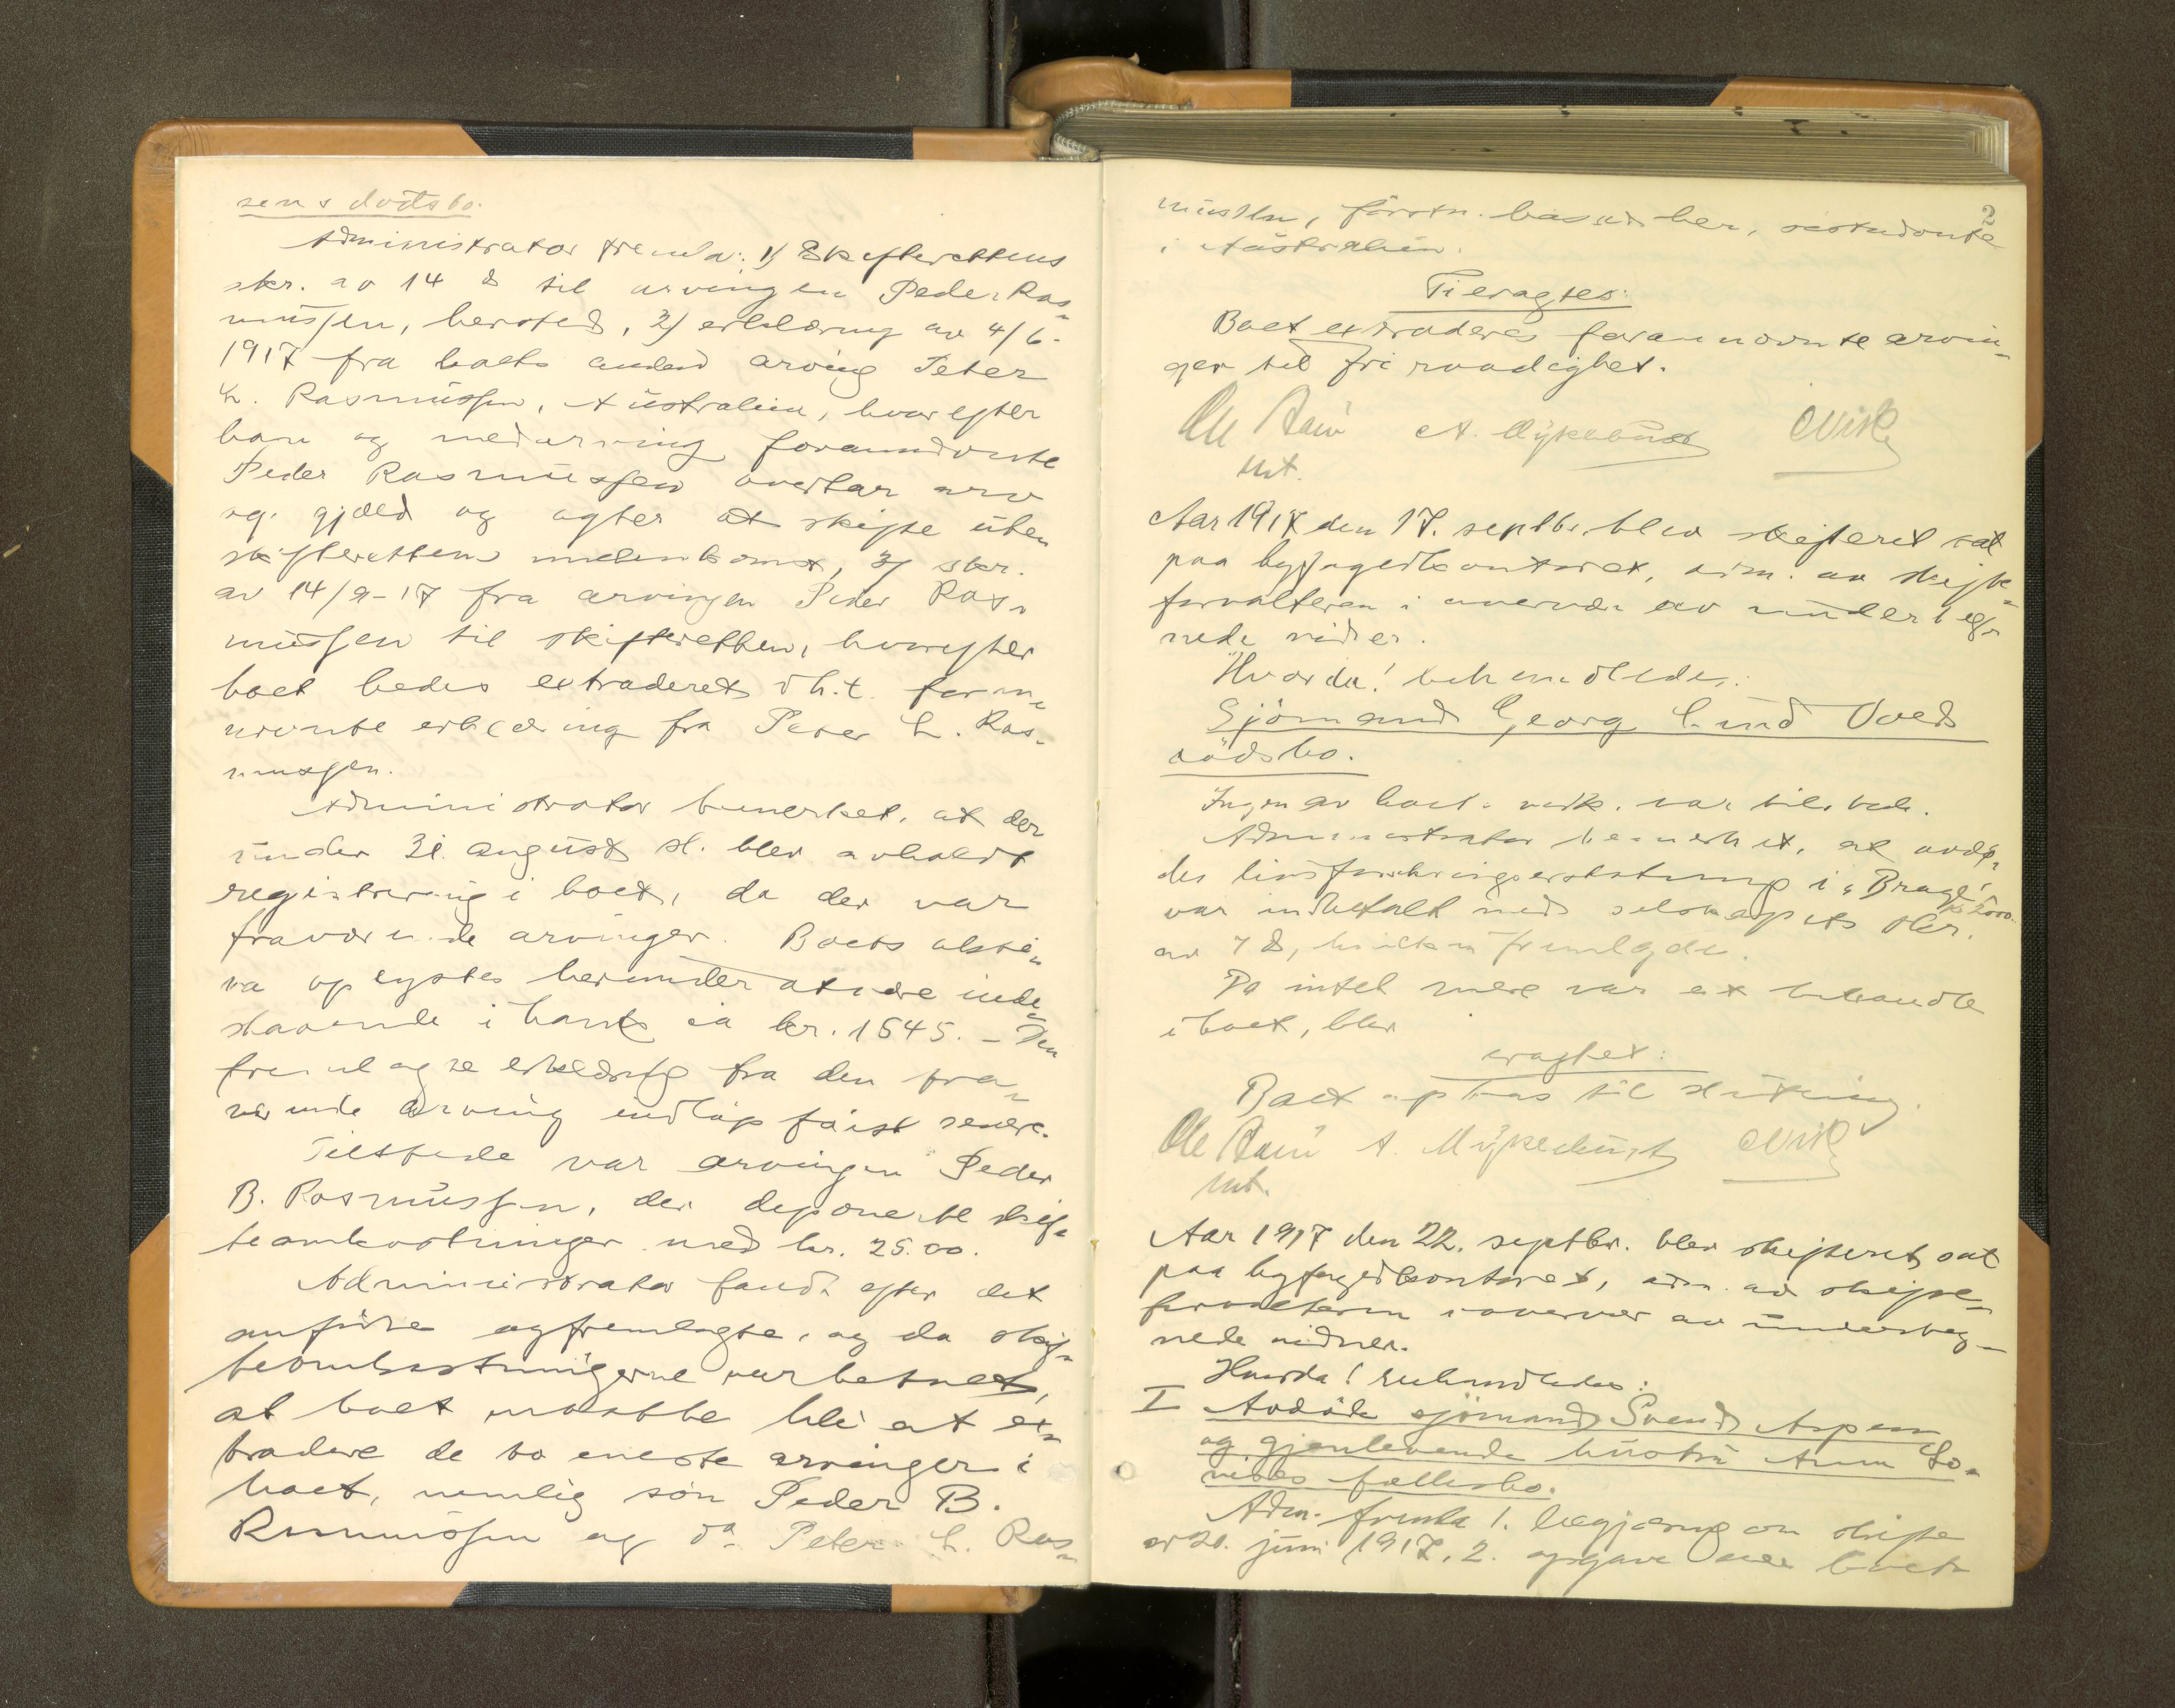 sens dødsbo.
Administrator fremla: 1) Skifterettens
skr. av 14 ds til arvingen Peder Ras-
mussen, hersteds, 2) erklæring av 4/6-
1917 fra boets anden arving Peter
L. Rasmussen, Australien, hvorefter
han og medarving forannævnte
Peder Rasmussen overtar arv
og gjæld og agter at skifte uten
skifterettens mellemkomst, 3) skr.
av 14/9-17 fra arvingen Peder Ras-
mussen til skifteretten, hvorefter
boet bedes extraderet i h.t. foran-
nævnte erklæring fra Peter L. Ras-
mussen.
Administrator bemerket, at der
under 31. august sl. blev avholdt
registrering i boet, da der var
fraværende arvinger. Boets akti-
va oplystes herunder at være inde-
staaende i bank ca kr. 1545.- Den
fremlagte erklæring fra den fra-
værende arving indløp først senere.
Tilstede var arvingen Peder
B. Rasmussen, der deponerte skif-
teomkostninger med kr. 25.00.
Administrator fandt efter det
anførte og fremlagte, og da skif-
teomkostningerne var betalt,
at boet maatte bli at ex-
tradere de to eneste arvinger i
boet, nemlig søn Peder B.
Rasmussen og do Peter L. Ras-
2
mussen, førstn. bosat her, sistnævnte
i Australien.
Ti eragtes:
Boet extraderes forannævnte arvin-
ger til fri raadighet.
Ole A. Nisk
Aar 1917 den 17. septbr. blev skifteret sat
paa byfogedkontoret, adm. av skifte-
forvalteren i overvær av underteg-
nede vidner.
Hvorda! behandledes:
Sjømand Georg Lund Voeds
dødsbo.
Ingen av boets vedk. var tilstede.
Administrator bemerket, at avdø-
des livsforsikringserstatning i "Brage" kr 2000.
var indbetalt med selskapets skr.
av 7 ds, hvilken fremlagdes.
Da intet mere var at behandle
i boet, blev
eragtet:
Boet optas til slutning.
Ole A. Nisk
Aar 1917 den 22. septbr. blev skifteret sat
paa byfogedkontoret, adm. av skifte-
forvalteren i overvær av underteg-
nede vidner.
Hvorda! behandledes:
I Avdøde sjømand Svend Aspem
og gjenlevende hustru Anna Lo-
vises fællesbo.
Adm. fremla 1. begjæring om skifte
av 20. juni 1917, 2. opgave over boets